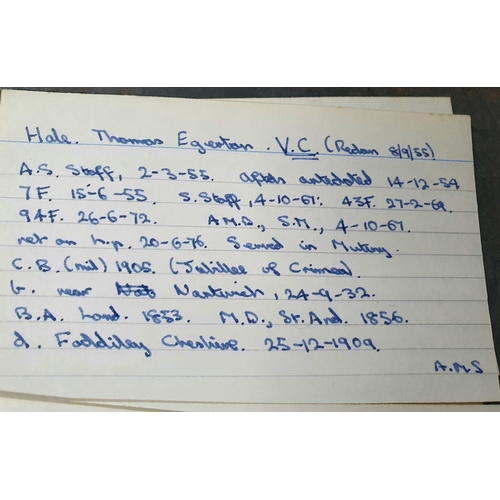 Hale. Thomas Egerton. V.C. (Redan 8/9/55)
A.S. Staff, 2-3-55. after antedated 14-12-54
7F. 15-6-55. S. Staff, 4-10-67. 43F. 27-2-69.
94F. 26-6-72. A.M.D., S.M., 4-10-67.
ret on h.p. 20-6-76. Served in Mutiny.
C.B. (mil) 1905. (Jubilee of Crimea)
b. near Nantwich, 24-9-32.
B.A. Lond. 1853. M.D., St. And. 1856.
d. Faddiley Cheshire. 25-12-1909.
A.M.S